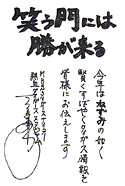 笑う門には
勝が来る
今年はねずみの如く
賢くすばやくタイガース情報を
皆様にお伝えします